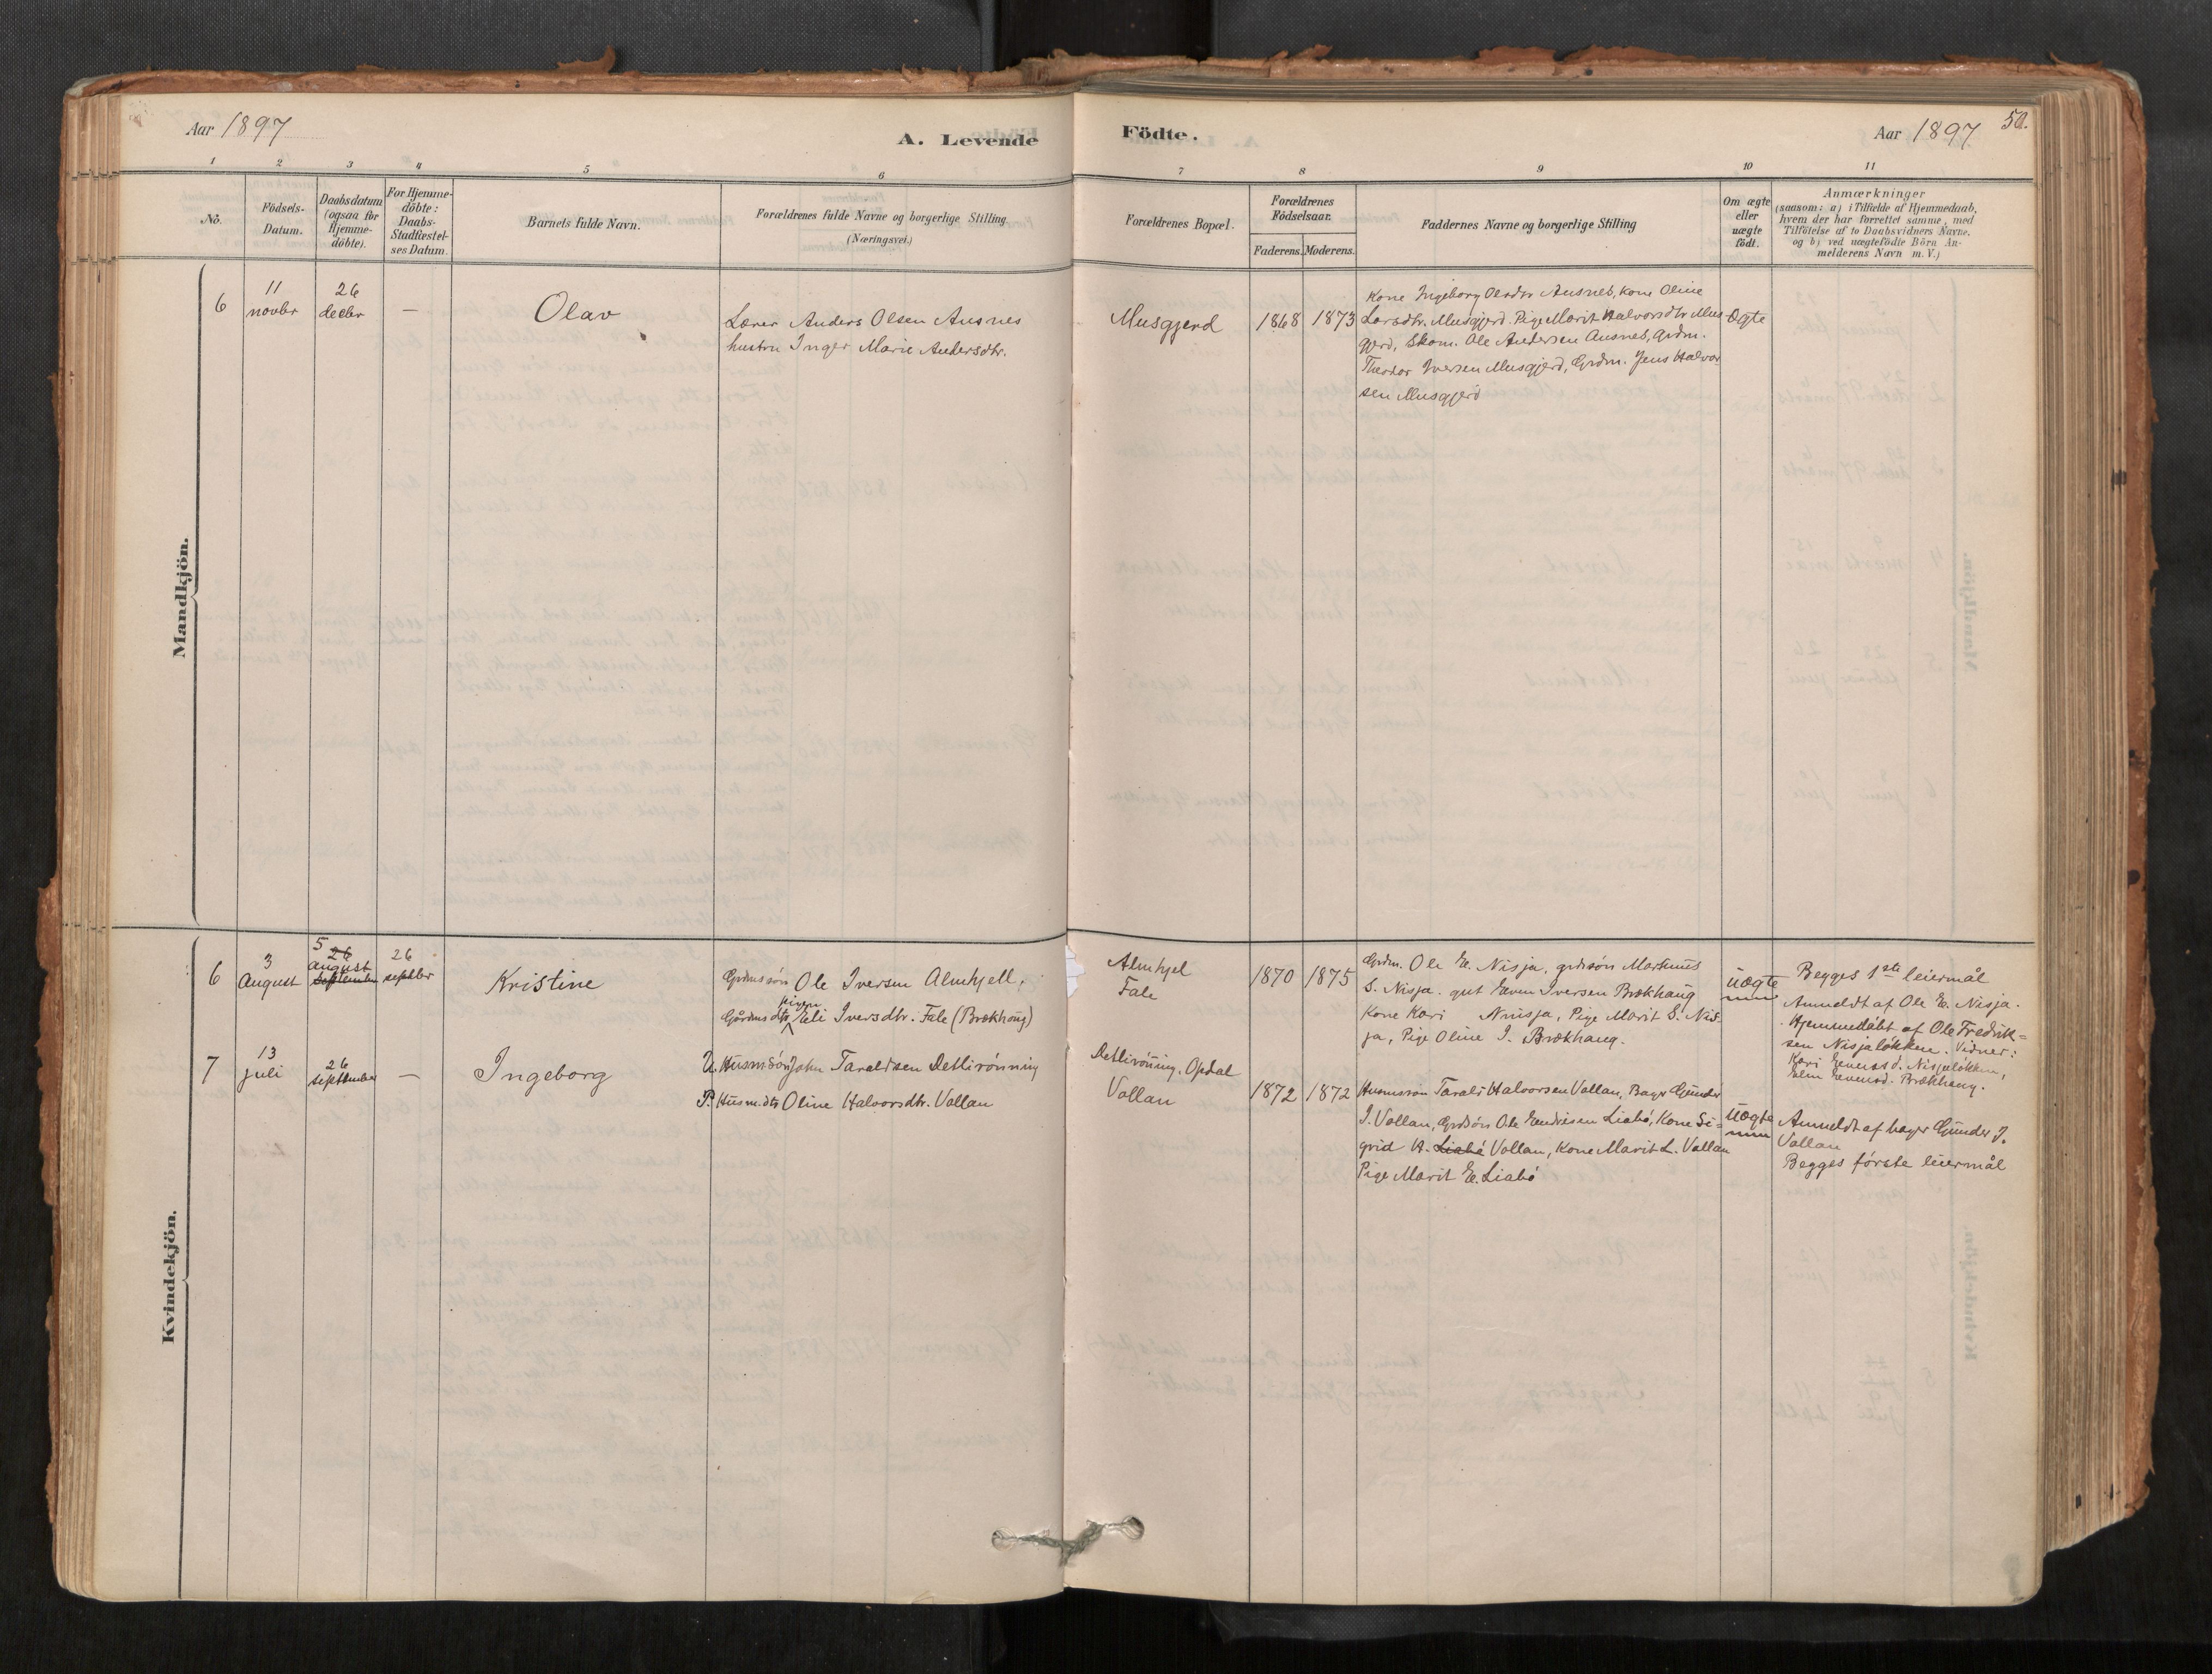 Aar 1897
A. Levende
Födte.
Aar 1897
50.
1 2 3 4 5 6 7 8 9 10 11
No.
Födsels-
Datum.
Daabsdatum
(ogsaa for
Hjemme-
döbte).
For Hjemme-
döbte:
Daabs-
Stadfæstel-
ses Datum.
Barnets fulde Navn.
Forældrenes fulde Navne og borgerlige Stilling.
(Næringsvei.)
Forældrenes Bopæl.
Forældrenes
Födselsaar.
Faderens. Moderens.
Faddernes Navne og borgerlige Stilling
Om ægte
eller
uægte
födt.
Anmærkninger
(saasom: a) i Tilfælde af Hjemmedaab,
hvem der har forrettet samme, med
Tilföielse af to Daabsvidners Navne.
og b) ved uægtefödte Börn An-
melderens Navn m. V.)
Mandkjön.
6
11
novbr
26
decbr
—
Olav
Lærer Anders Olsen Ausnes
hustru Inger Marie Andersdtr.
Musgjerd
1868
1873
Kone Ingeborg Olsdtr Ausnes, kone Oline
Larsdtr. Musgjerd. Pige Marit Halvorsdtr Mus-
gjerd, Skom. Ole Andersen Ausnes, Grdm.
Theodor Iversen Musgjerd, Grdm. Jens Halvor
sen Musgjerd
Ægte
Kvindekjön.
6
3
August
5 26
august
september
26
septbr
Kristine
Grdmssøn Ole Iversen Almhjell.
pigen
Gårdmsdtr Eli Iversdtr. Fale (Brækhaug)
Almhjel
Fale
1870
1875
Grdm. Ole E. Nisja, grdsön Martinus
S. Nisja. gut Even Iversen Brækhaug
Kone Kari Nisja, Pige Marit S. Nis-
ja, Pige Oline I. Brækhaug.
uægte
Begges 1ste leiermål
Anmeldt af Ole E. Nisja.
Hjemmedöbt af Ole Fredrik-
sen Nisjalökken. Vidner:
Kari Evensd. Nisjalökken,
Evensd. Brækhaug.
7
13
juli
26
september
—
Ingeborg
U. Husmsön John Taraldsen Detlirönning
P. Husm.dtr Oline Halvorsdtr. Vollan
Detlirönning, Opdal
Vollan
1872
1872
Husmssön Tarald Halvorsen Vollan, Bager Gunder
J. Vollan, Grdsön Ole Endresen Liabö, Kone Si-
grid A. Liabö Vollan, Kone Marit L. Vollan
Pige Marit E. Liabö
uægte
Anmeldt af bager Gunder J.
Vollan
Begges förste leiermål